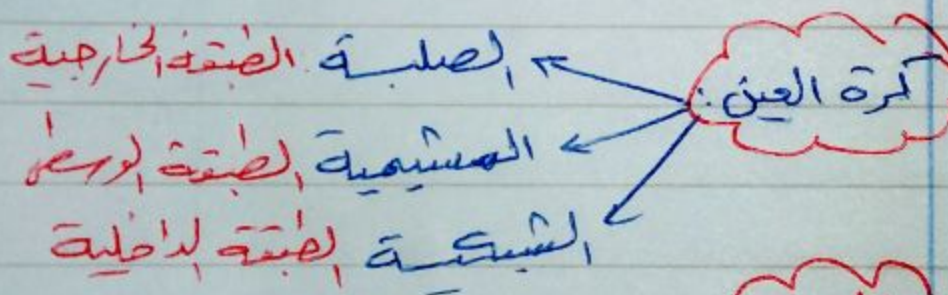 كرة العين:
الصلبة الطبقة الخارجية
المشيمية الطبقة الوسطى
الشبكية الطبقة الداخلية